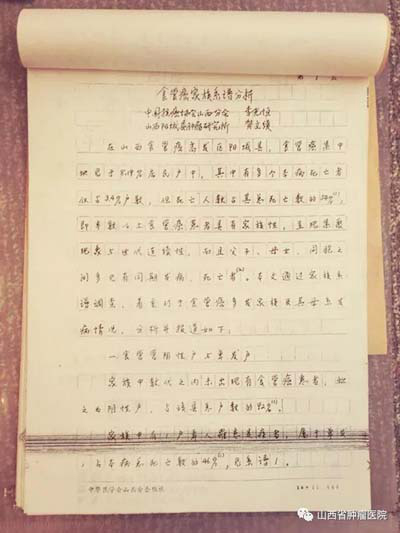 第 1 页
食管癌家族系谱分析
中国抗癌协会山西分会 李光恒
山西阳城县肿瘤研究所
在山西食管癌高发区阳城县,食管癌集中
地见于 居民户中,其中有多个本病死亡者
仅占3.4%户数,但死亡人数占其总死亡数的
即半数以上食管癌患者具有家族性,呈现集聚
现象与世代连续性,而且父子、母女、同胞之
间多见有同期发病、死亡者。本文通过家族系
谱调查,着重对于食管癌多发家族及其母系发
病情况,分析并报道如下:
一、食管癌阴性户与单发户
家族中数代之内未出现有食管癌患者,称
之为阴性户,占该县总户数的92%。
家族中有1户1人患
,占本病总死亡数的46%,见系谱1。
中华医学会山西分会
山西省肿瘤医院